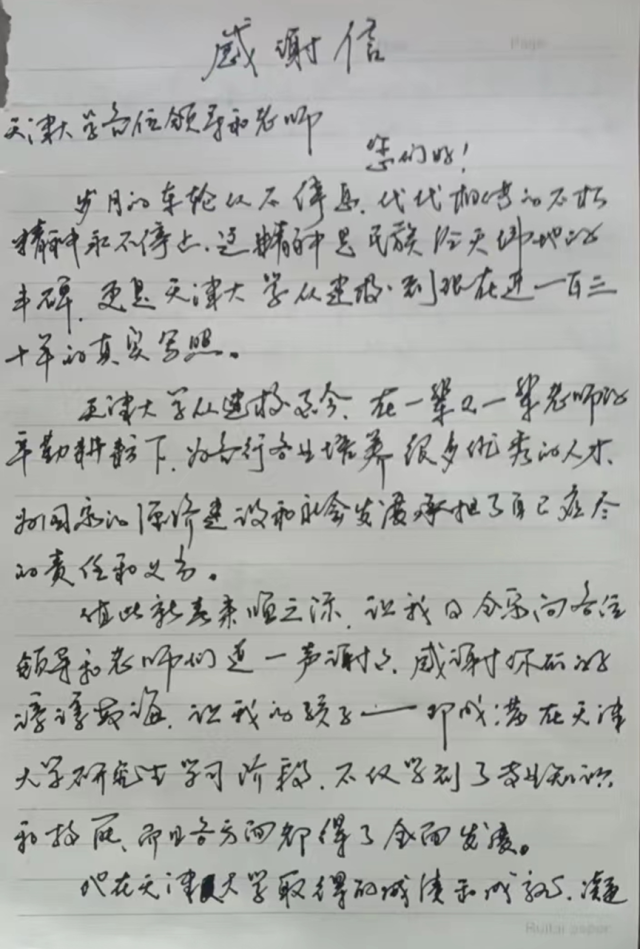 感谢信
天津大学各位领导和老师
您们好！
岁月的车轮从不停息，代代相传的不朽
精神永不停止，这精神是民族顶天绅地的
丰碑，更是天津大学从建校到现在进一百三
十年的真实写照。
天津大学从建校至今，在一辈又一辈老师的
辛勤耕耘下，为各行各业培养很多优秀的人才，
为国家的经济建设和社会发展承担了自己应尽
的责任和义务。
值此新春来临之际，让我代全家向各位
领导和老师们道一声谢谢，感谢你们的
谆谆教诲，让我的孩子——邢成潇在天津
大学研究生学习阶段，不仅学到了专业知识
和技能，而且各方面都得了全面发展。
他在天津大学取得的成绩和成就，凝
Page